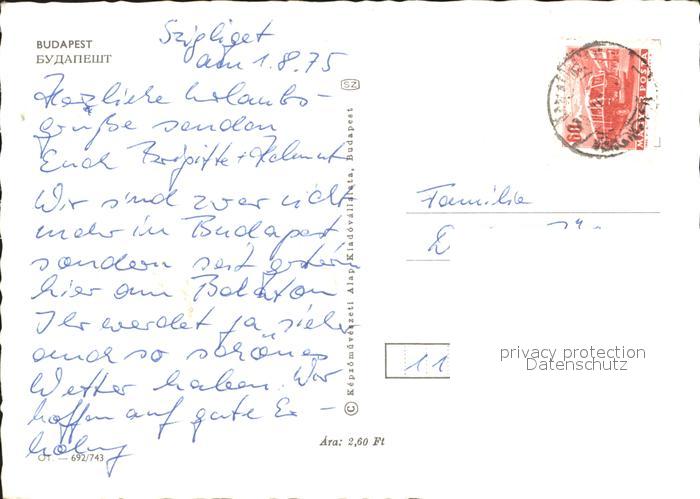 BUDAPEST
БУДАПЕШТ
Szigliget
am 1.8.75
Herzliche Urlaubs-
grüße senden
Euch Brigitte + Helmut
Wir sind zwar nicht
mehr in Budapest
sondern seit gestern
hier am Balaton
Ihr werdet ja sicher
auch so schönes
Wetter haben. Wir
hoffen auf gute Er-
holung
OT. — 692/743
SZ
© Képzőművészeti Alap Kiadóvállalata, Budapest
Ára: 2,60 Ft
60
MAGYAR POSTA
Familie
11
privacy protection
Datenschutz